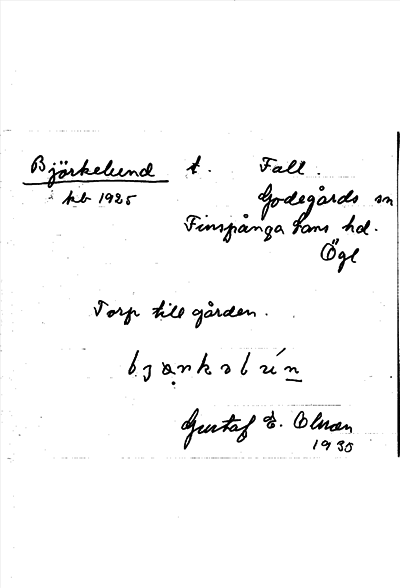 Björkelund t. Fall.
kb 1925 Godegårds sn
Finspånga läns hd.
Ögl
Torp till gården.
Gustaf E. Olson
1935